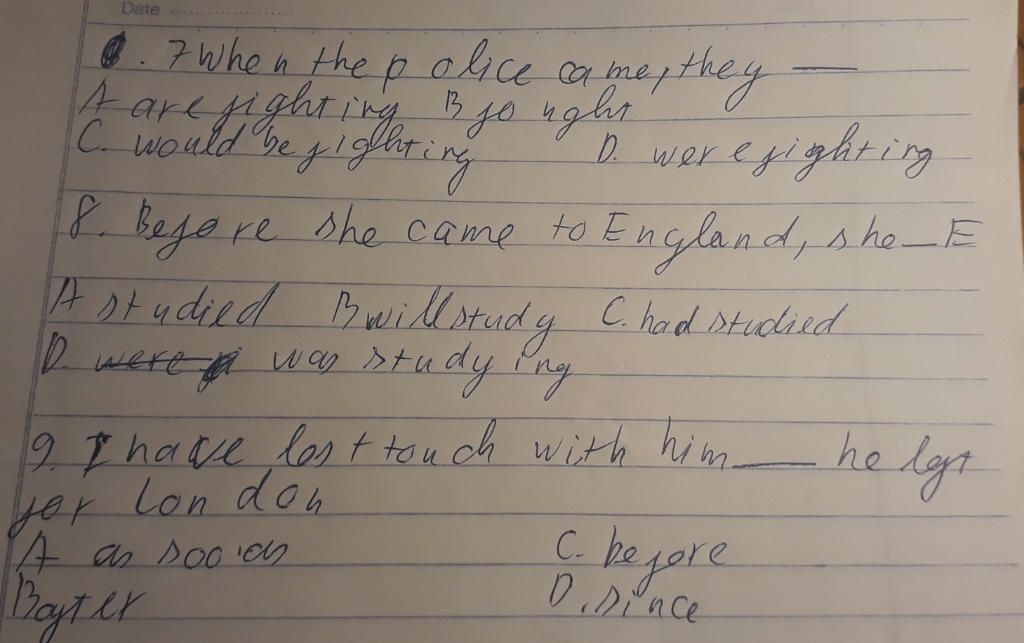 Date
7 When the police came, they —
A are fighting B fought
C. would be fighting D. were fighting
8. Before she came to England, she — E
A studied B will study C. had studied
D. were was studying
9. I have lost touch with him — he left
for London
A as soo as C. before
B after D. since